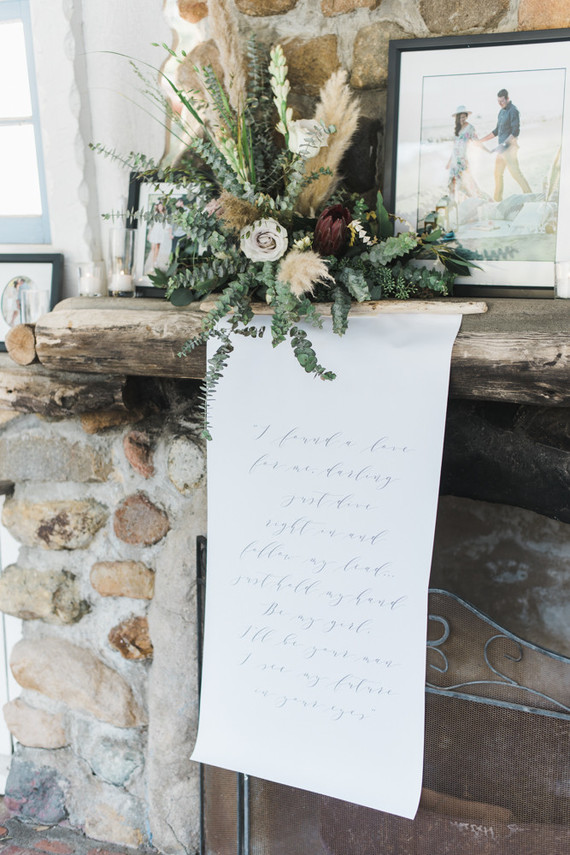 "I found a love
for me, darling
just dive
right in and
follow my lead...
just hold my hand
Be my girl,
I'll be your man
I see my future
in your eyes"